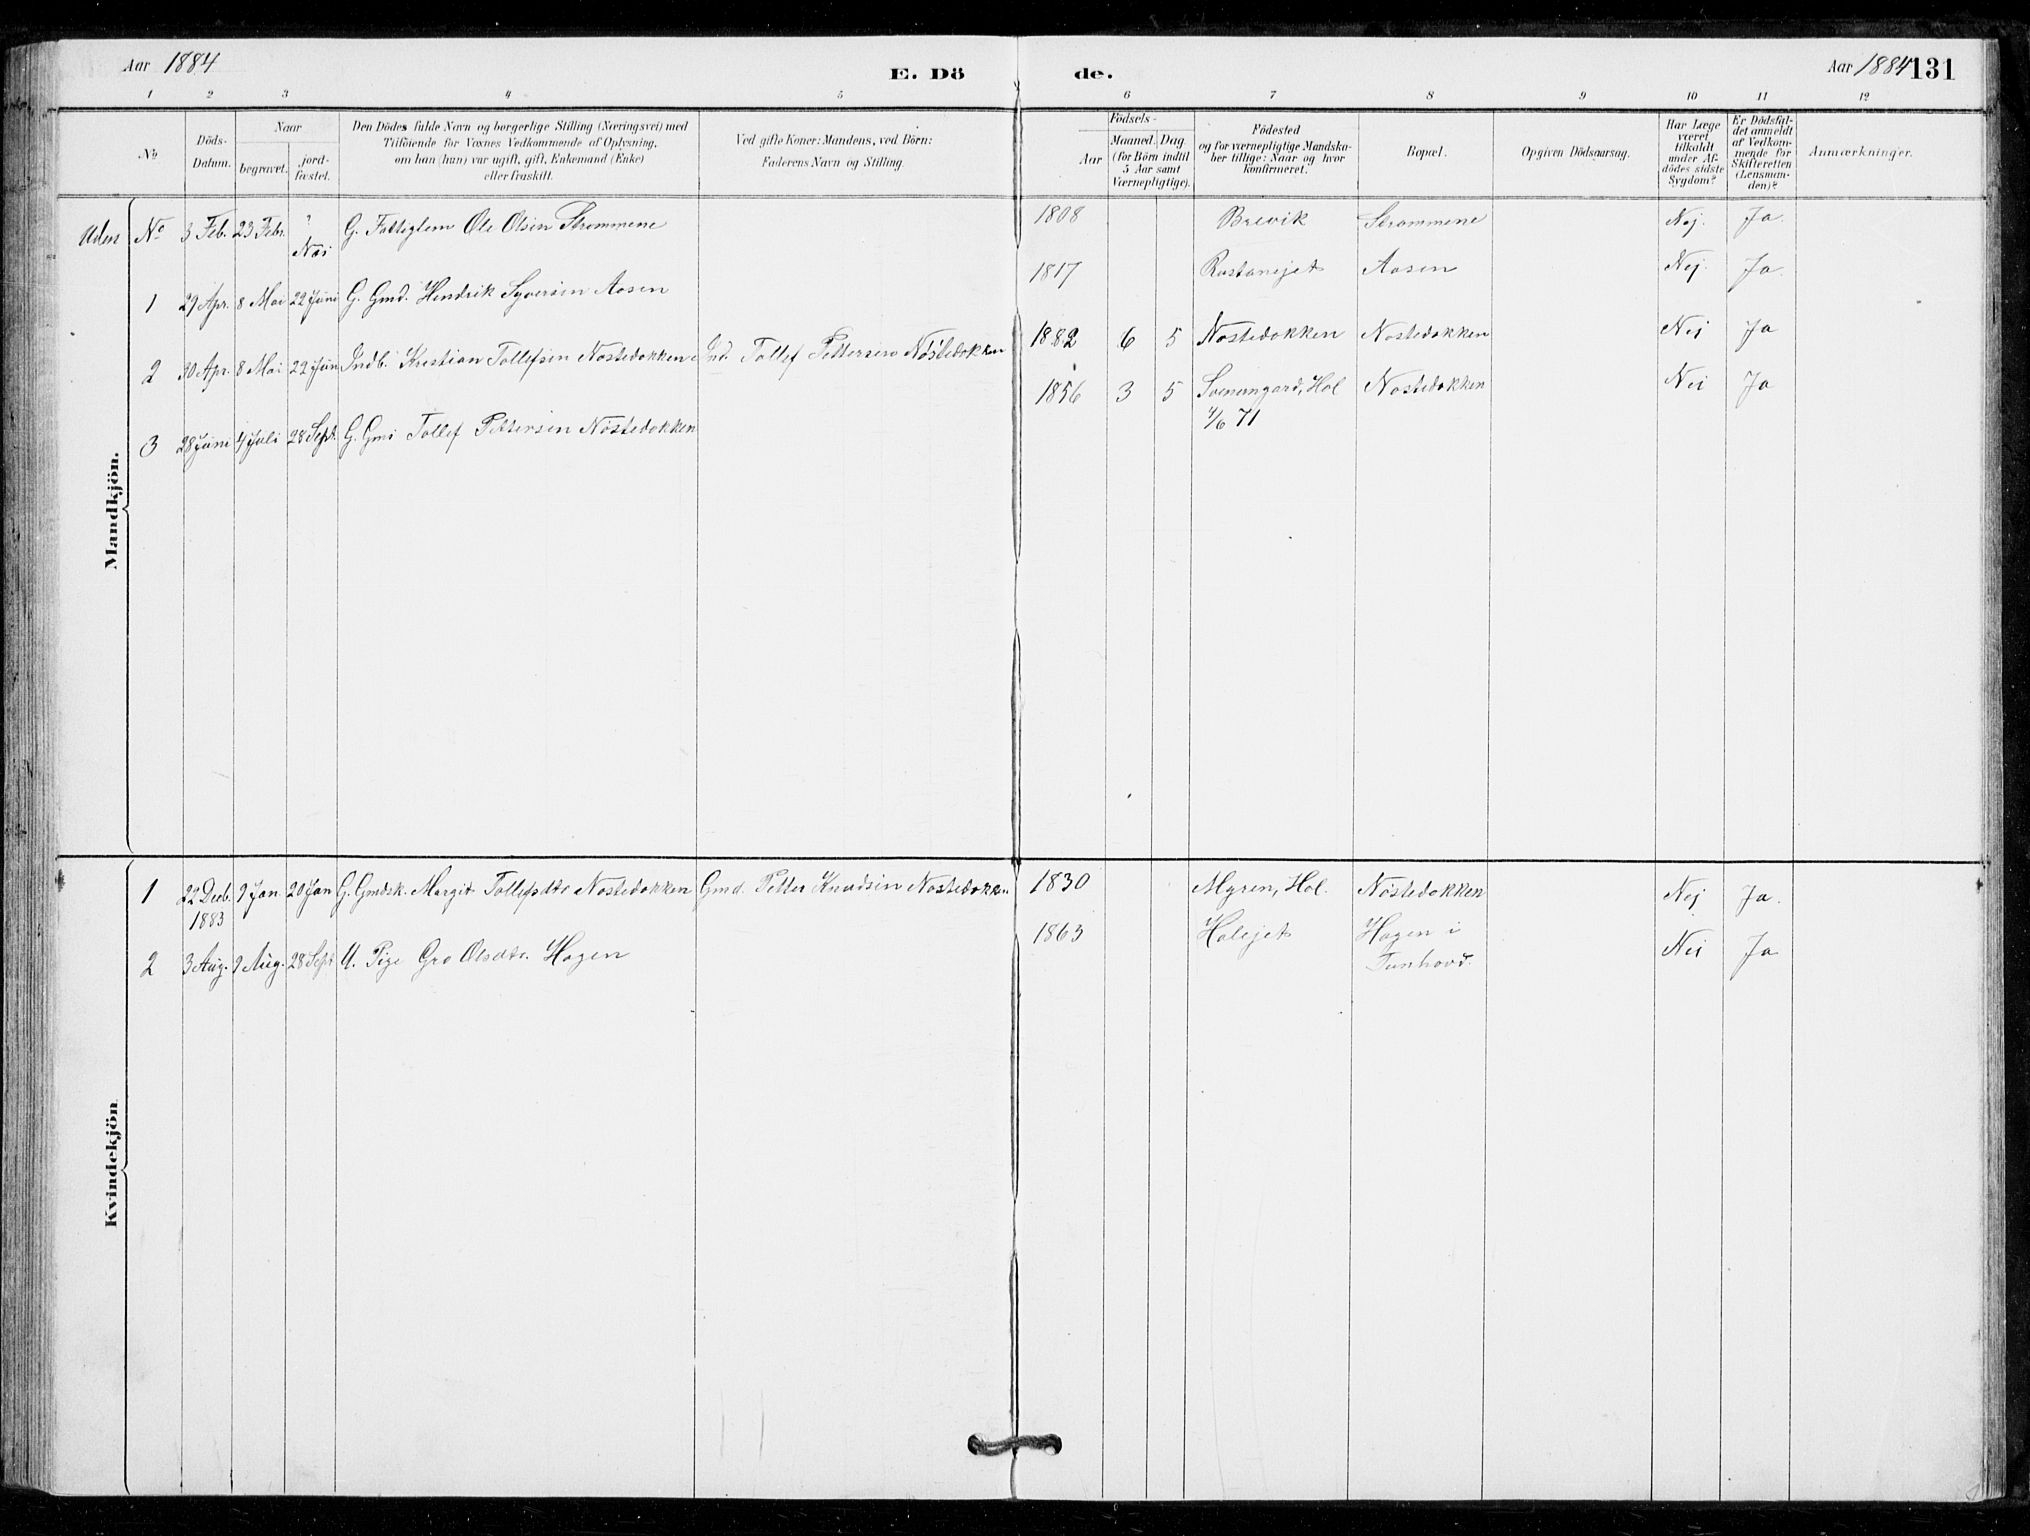 Aar 1884
E. Dö
de.
Aar 1884
131
1 2 3 4 5 6 7 8 9 10 11 12
No
Döds-
Datum.
Naar
begravet.
jord-
fæstet.
Den Dödes fulde Navn og borgerlige Stilling (Næringsvei) med
Tilföiende for Voxnes Vedkommende af Oplysning,
om han (hun) var ugift, gift, Enkemand (Enke)
eller fraskilt.
Ved gifte Koner: Mandens, ved Börn:
Faderens Navn og Stilling.
Födsels-
Aar
Maaned. Dag
(for Börn indtil
5 Aar samt
Værnepligtige).
Födested
og for værnepligtige Mandska-
ber tillige: Naar og hvor
konfirmeret.
Bopæl.
Opgiven Dödsaarsag.
Har Læge
været
tilkaldt
under Af-
dödes sidste
Sygdom?
Er Dödsfal-
det anmeldt
af Vedkom-
mende for
Skifteretten
(Lensman-
den)?
Anmærkninger.
Mandkjön.
Uden No 3 Feb. 23 Febr. ? G. Fattiglem Ole Olsen Strømmene 1808 Brevik Strømmene Nej. Ja.
1 29 Apr. 8 Mai 22 Juni G. Gmd. Hendrik Syversen Aasen 1817 Aasen Nej. Ja.
2 30 Apr. 8 Mai 22 Jun Indb. Kristian Tollefsen Nøstedokken Ind. Tollef Pettersen Nøstedokken 1882 6 5 Nøstedokken Nøstedokken Nej Ja
3 28 Juni 4 Juli 28 Sept. G. Tollef Pettersen Nøstedokken 1856 3 5 Hol Nøstedokken Nei Ja
4/6 71
Kvindekjön
1 22 Decb. 9 Jan. 20 Jan G. Gmdsk. Margit Tollefsdtr Nøstedokken Gmd. Petter Knudsen Nøstedokken 1830 Myren, Hol. Nøstedokken Nej Ja.
1883
2 3 Aug. 9 Aug. 28 Sept U. Pige Gro Olsdtr. Hagen 1863 Holejet Hagen i Nei Ja
Tunhovd.